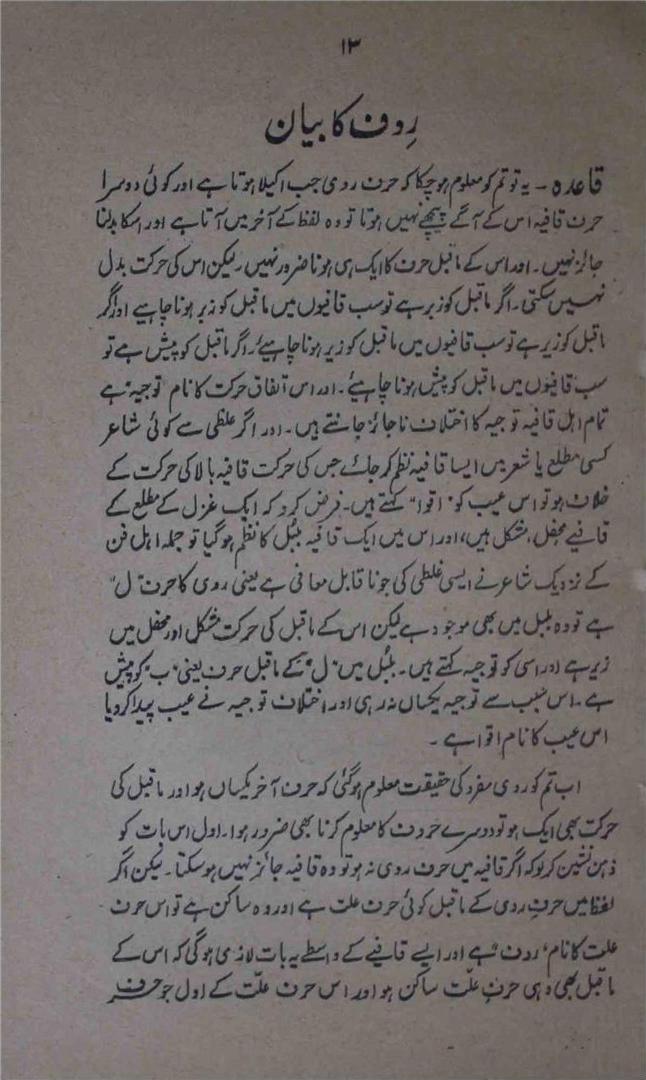 ۱۳
رِدف کا بیان
قاعدہ - یہ تو تم کو معلوم ہو چکا کہ حرف روی جب اکیلا ہوتا ہے اور کوئی دوسرا
حرف قافیہ اس کے آگے پیچھے نہیں ہوتا تو وہ لفظ کے آخر میں آتا ہے اور اسکا بدلنا
جائز نہیں۔ اور اس کے ماقبل حرف کا ایک ہی ہونا ضرور نہیں لیکن اس کی حرکت بدل
نہیں سکتی۔ اگر ماقبل کو زبر ہے تو سب قافیوں میں ماقبل کو زبر ہونا چاہیے اور اگر
ماقبل کو زیر ہے تو سب قافیوں میں ماقبل کو زیر ہونا چاہیئے۔ اگر ماقبل کو پیش ہے تو
سب قافیوں میں ماقبل کو پیش ہونا چاہیئے۔ اور اس اتفاق حرکت کا نام "توجیہ" ہے
تمام اہل قافیہ توجیہ کا اختلاف ناجائز جانتے ہیں۔ اور اگر غلطی سے کوئی شاعر
کسی مطلع یا شعر میں ایسا قافیہ نظم کر جائے جس کی حرکت قافیہ بالا کی حرکت کے
خلاف ہو تو اس عیب کو "اقوا" کہتے ہیں۔ فرض کرو کہ ایک غزل کے مطلع کے
قافیے محفل، مشکل ہیں، اور اس میں ایک قافیہ بلبُل کا نظم ہو گیا تو جملہ اہل فن
کے نزدیک شاعر نے ایسی غلطی کی جو ناقابل معافی ہے یعنی روی کا حرف "ل"
ہے تو وہ بلبل میں بھی موجود ہے لیکن اس کے ماقبل کی حرکت مشکل اور محفل میں
زیر ہے اور اسی کو توجیہ کہتے ہیں۔ بلبُل میں "ل" کے ماقبل حرف یعنی "ب" کو پیش
ہے۔ اس سبب سے توجیہ یکساں نہ رہی اور اختلاف توجیہ نے عیب پیدا کر دیا
اس عیب کا نام اقوا ہے۔
اب تم کو روی مفرد کی حقیقت معلوم ہو گئی کہ حرف آخر یکساں ہو اور ماقبل کی
حرکت بھی ایک ہو تو دوسرے حروف کا معلوم کرنا بھی ضرور ہوا۔ اول اس بات کو
ذہن نشین کر لو کہ اگر قافیہ میں حرف روی نہ ہو تو وہ قافیہ جائز نہیں ہو سکتا۔ لیکن اگر
لفظ میں حرفِ روی کے ماقبل کوئی حرف علت ہے اور وہ ساکن ہے تو اس حرف
علت کا نام "ردف" ہے اور ایسے قافیے کے واسطے یہ بات لازمی ہو گی کہ اس کے
ماقبل بھی وہی حرفِ علّت ساکن ہو اور اس حرف علّت کے اول جو حرف